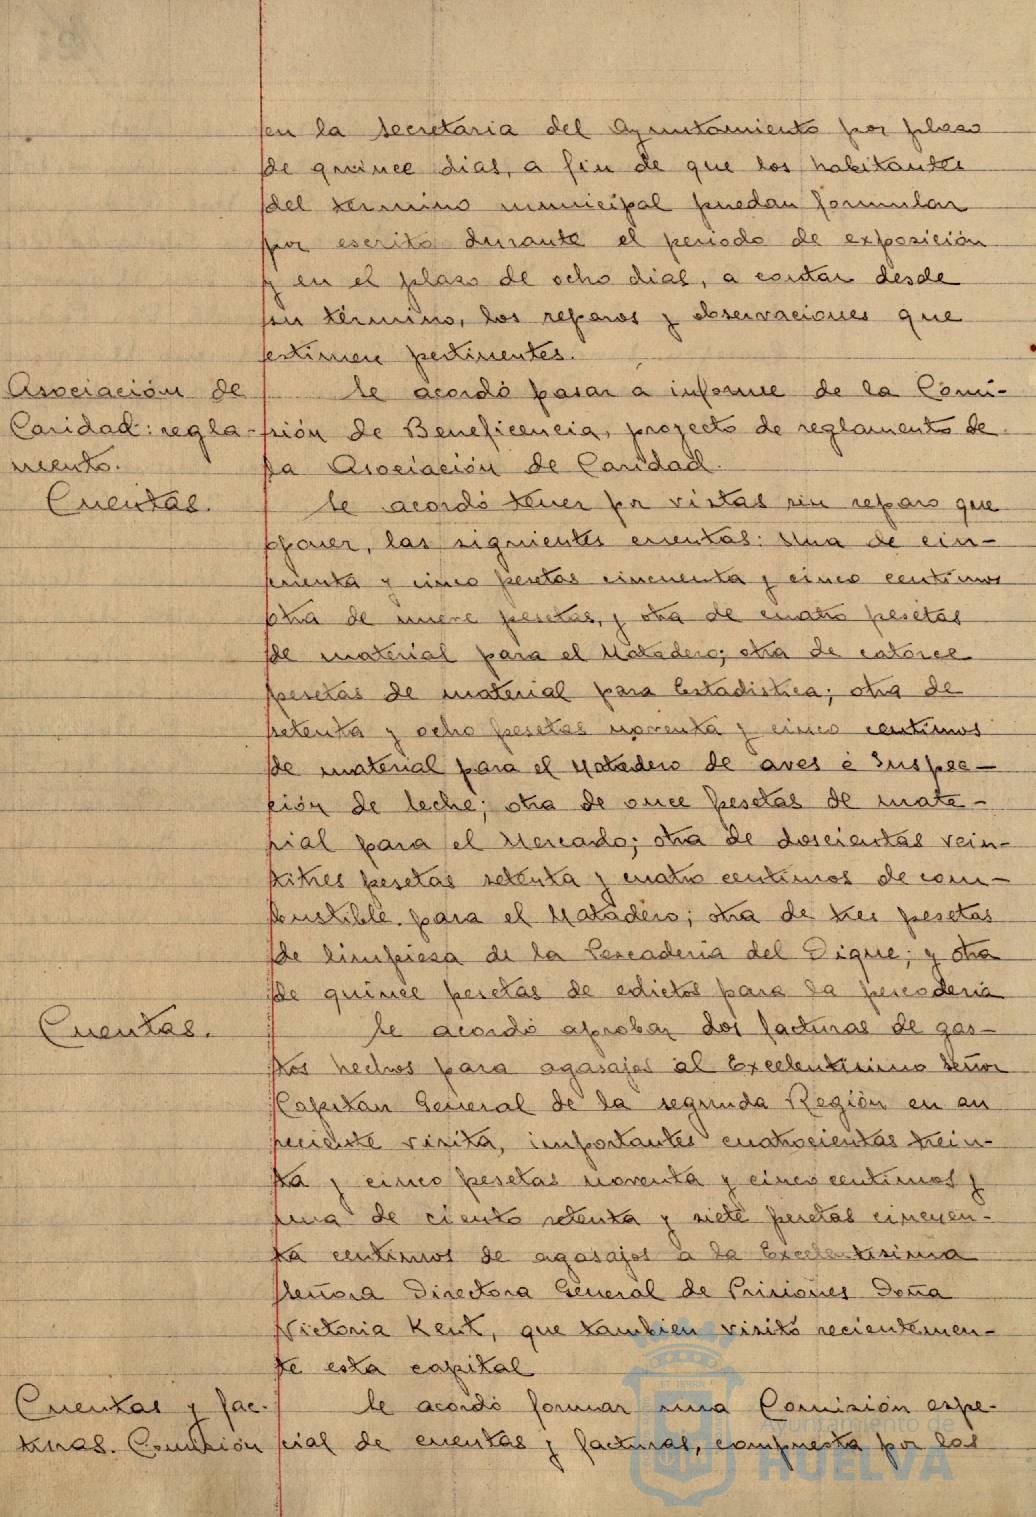 en la secretaria del Ayuntamiento por plazo
de quince dias, a fin de que los habitantes
del termino municipal puedan formular
por escrito durante el periodo de exposición
y en el plazo de ocho dias, a contar desde
su término, los reparos y observaciones que
estimen pertinentes.
Asociación de
Caridad: regla-
mento.
Se acordó pasar a informe de la Comi-
sión de Beneficencia, proyecto de reglamento de
la Asociación de Caridad.
Cuentas.
Se acordó tener por vistas sin reparo que
oponer, las siguientes cuentas: Una de cin-
cuenta y cinco pesetas cincuenta y cinco centimos
otra de nueve pesetas, y otra de cuatro pesetas
de material para el Matadero; otra de catorce
pesetas de material para Estadistica; otra de
setenta y ocho pesetas noventa y cinco centimos
de material para el Matadero de aves é Inspec-
ción de leche; otra de once pesetas de mate-
rial para el Mercado; otra de doscientas vein-
titres pesetas setenta y cuatro centimos de com-
bustible para el Matadero; otra de tres pesetas
de limpieza de la Pescaderia del Dique; y otra
de quince pesetas de edictos para la pescaderia
Cuentas.
Se acordó aprobar dos facturas de gas-
tos hechos para agasajos al Excelentisimo Señor
Capitan General de la segunda Región en su
reciente visita, importantes cuatrocientas trein-
ta y cinco pesetas noventa y cinco centimos y
una de ciento setenta y siete pesetas cincuen-
ta centimos de agasajos a la Excelentisima
Señora Directora General de Prisiones Doña
Victoria Kent, que tambien visitó recientemen-
te esta capital
Cuentas y fac-
turas. Comisión
Se acordó formar una Comisión espe-
cial de cuentas y facturas, compuesta por los
Ayuntamiento de
HUELVA